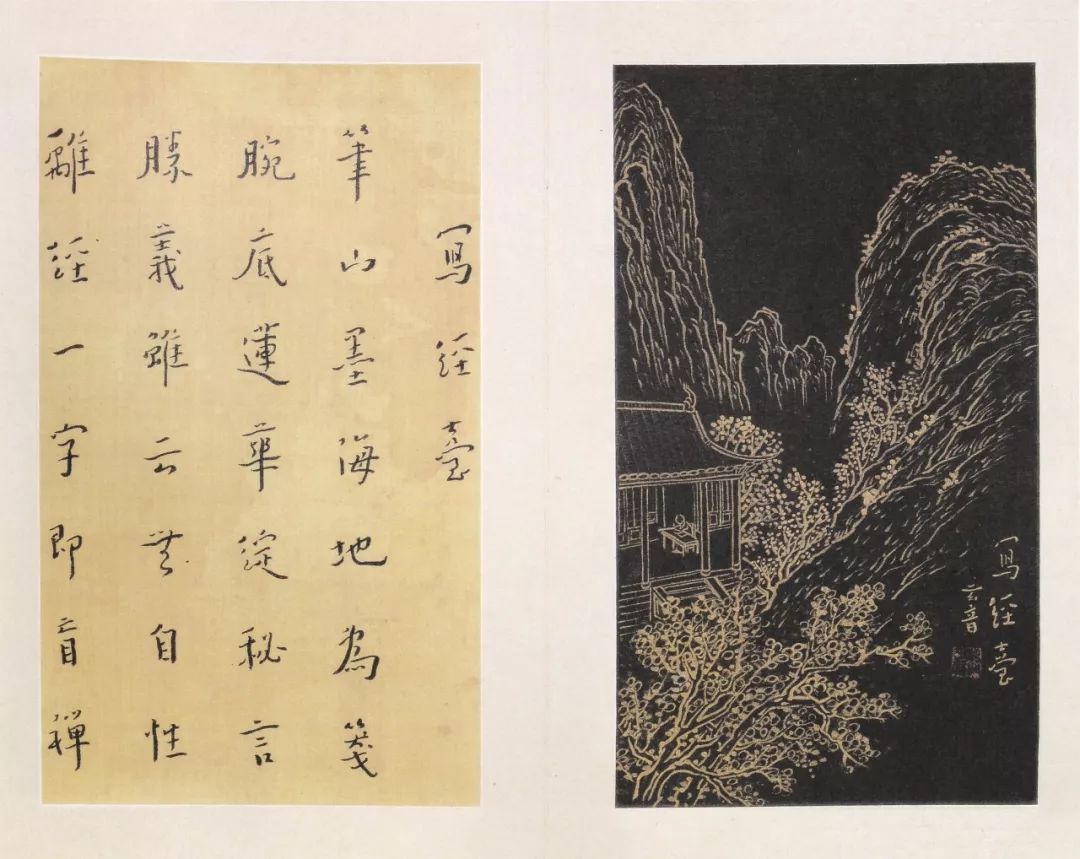 寫經臺
筆山墨海地為箋
腕底蓮華綻秘言
勝義雖云無自性
離經一字即盲禪
寫經臺
云音